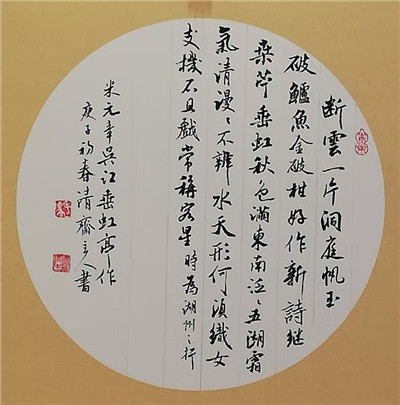 斷雲一片洞庭帆玉
破鱸魚金破柑好作新詩継
桒苧垂虹秋色滿東南泛〻五湖霜
氣清漫〻不辨水天形何須織女
支機石且戲常稱客星時為湖州之行
米元章吳江垂虹亭作
庚子初春清齋主人書